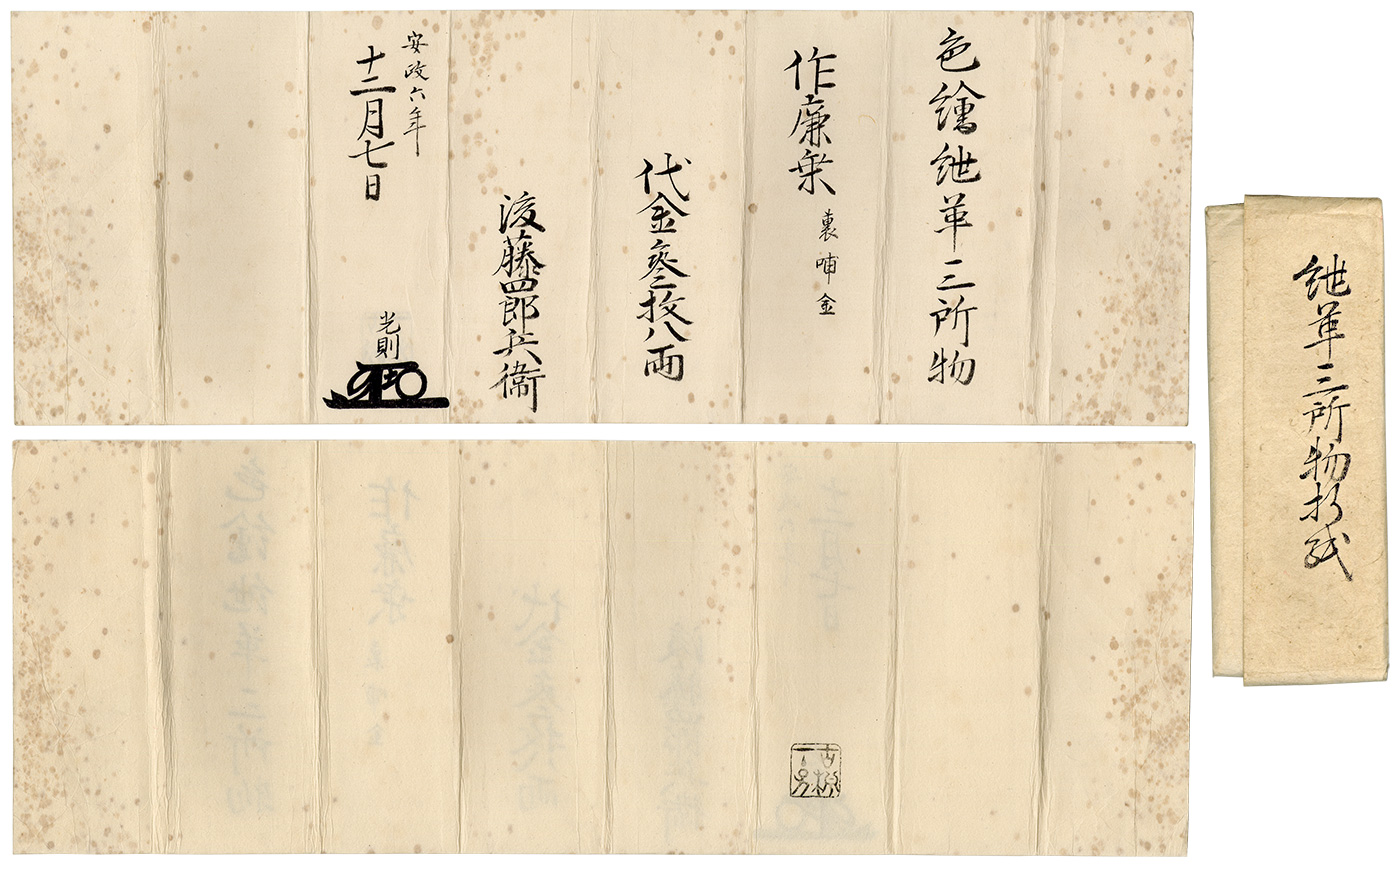 色繪紲革三所物
作廉乗
裏哺金
代金叄枚八両
後藤四郎兵衛
安政六年
十二月七日
光則
紲革三所物折紙